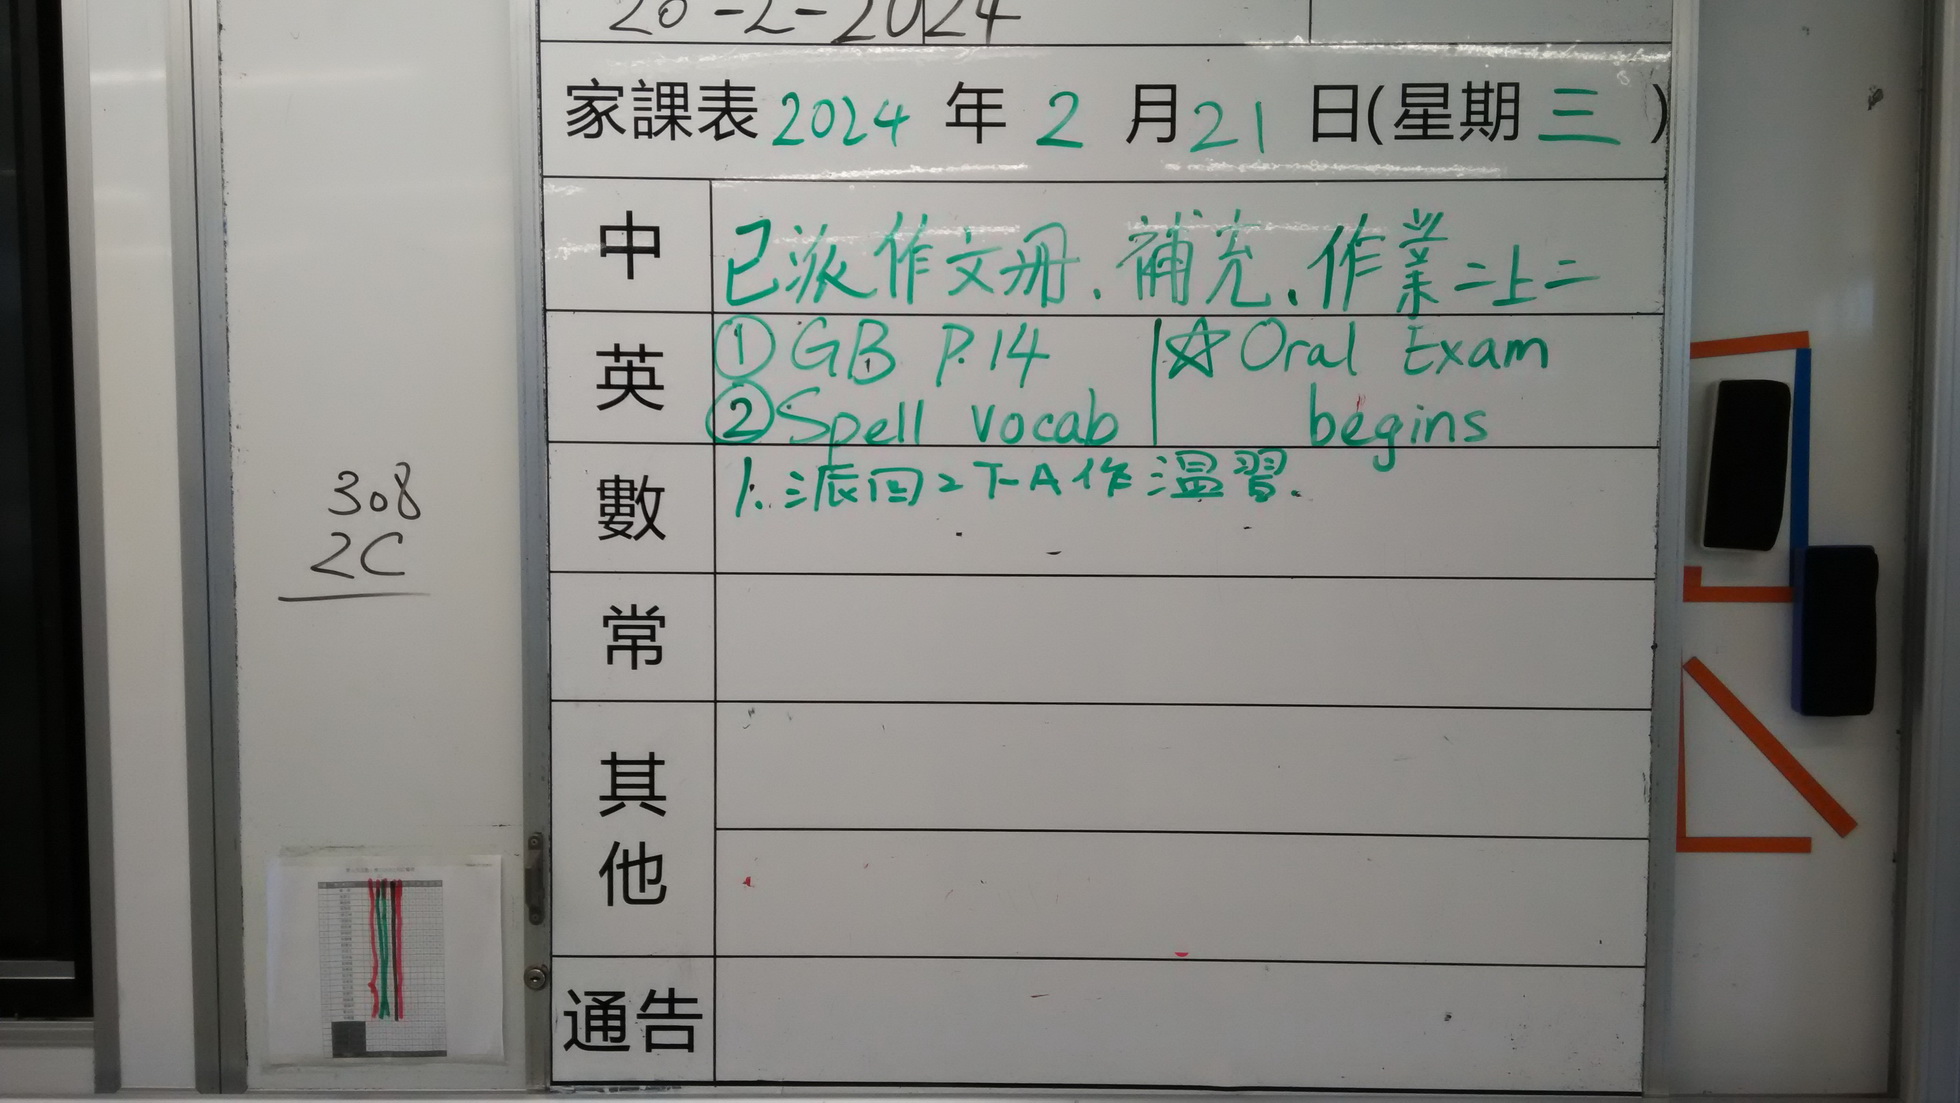 20-2-2024
家課表 2024 年 2 月 21 日(星期 三 )
中 已派作文冊、補充、作業二上二
英 ① GB P.14 ☆ Oral Exam
② Spell vocab begins
數 1. 派回2下A作溫習.
常
其他
通告
308
2C